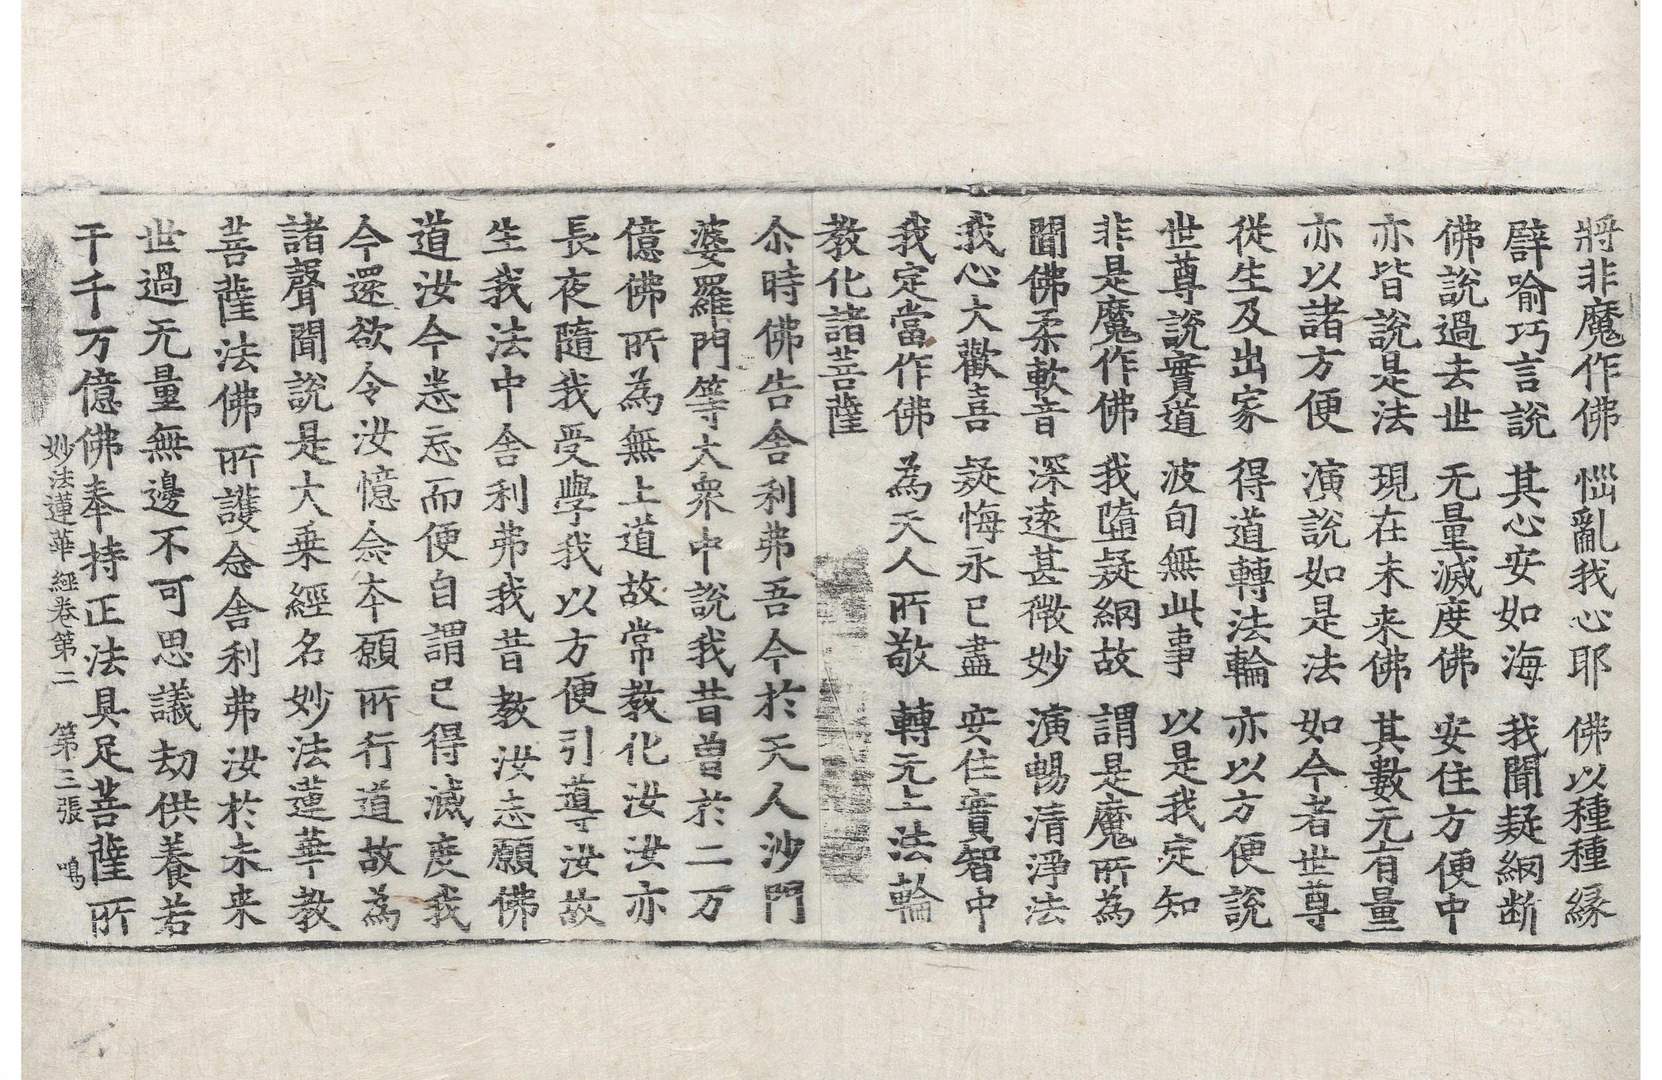 將非魔作佛 惱亂我心耶 佛以種種緣
譬喻巧言說 其心安如海 我聞疑網斷
佛說過去世 无量滅度佛 安住方便中
亦皆說是法 現在未来佛 其數无有量
亦以諸方便 演說如是法 如今者世尊
從生及出家 得道轉法輪 亦以方便說
世尊說實道 波旬無此事 以是我定知
非是魔作佛 我墮疑網故 謂是魔所為
聞佛柔軟音 深遠甚微妙 演暢清淨法
我心大歡喜 疑悔永已盡 安住實智中
我定當作佛 為天人所敬 轉无上法輪
教化諸菩薩
尒時佛告舍利弗吾今於天人沙門
婆羅門等大衆中說我昔曽於二万
億佛所為無上道故常教化汝汝亦
長夜隨我受學我以方便引導汝故
生我法中舍利弗我昔教汝志願佛
道汝今悉忘而便自謂已得滅度我
今還欲令汝憶念本願所行道故為
諸聲聞說是大乗經名妙法蓮華教
菩薩法佛所護念舍利弗汝於未来
世過无量無邊不可思議劫供養若
干千万億佛奉持正法具足菩薩所
妙法蓮華經卷第二 第三張 鳴